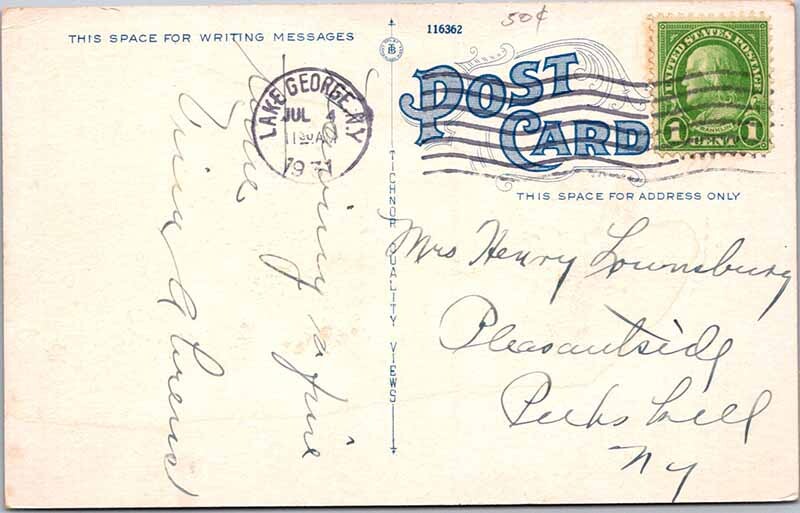 THIS SPACE FOR WRITING MESSAGES
116362
50¢
POST
CARD
UNITED STATES POSTAGE
1 FRANKLIN 1
CENT
LAKE GEORGE, N.Y.
JUL 4
1931
THIS SPACE FOR ADDRESS ONLY
TICHNOR QUALITY VIEWS
Having a fine
time
Mrs Henry Lounsbury
Pleasantside
Peekskill
NY